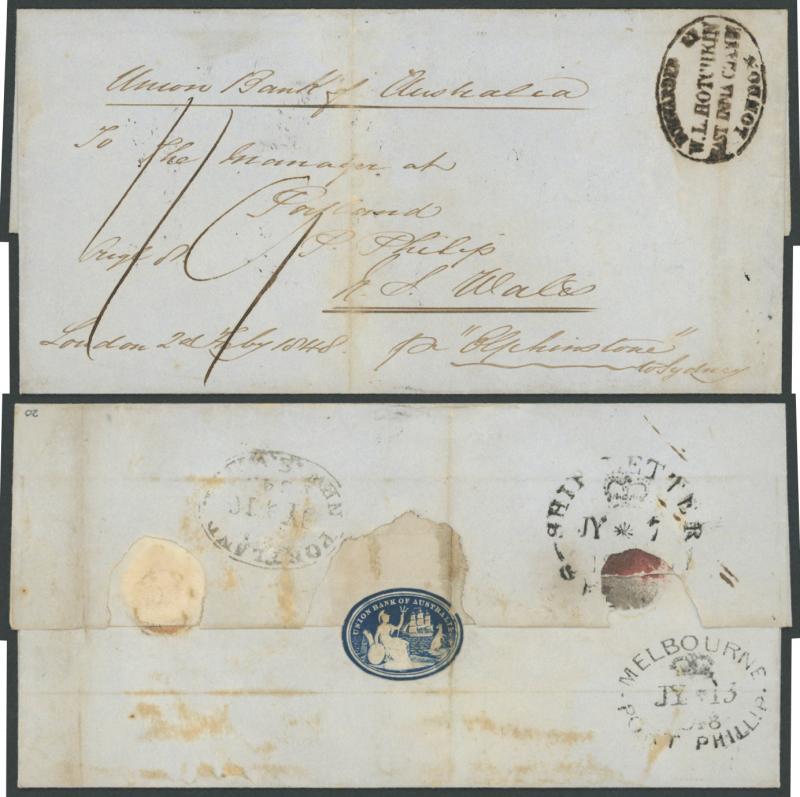 Union Bank of Australia
To The Manager at
Portland
P. Philip
N. S. Wales
London 2d Feby 1848. pr "Elphinstone"
to Sydney
FORWARDED BY
W. L. HOTCHKIN
EAST INDIA
LONDON
20
NEW S. WALES
PORTLAND
SHIP LETTER
JY * 7
UNION BANK OF AUSTRALIA
MELBOURNE
JY 13
PORT PHILLIP